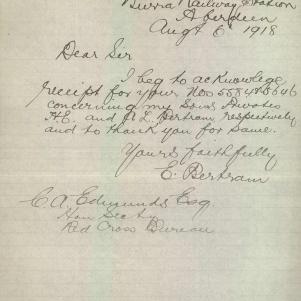 Burra Railway Station
Aberdeen
Augt 6th 1918
Dear Sir
I beg to acknowlege
receipt for your Nos 5534 & 5646
concerning my Sons Privates
H.E. and A L. Bertram respectively
and to thank you for same.
Yours faithfully
E. Bertram
C. A. Edmunds Esq.
Hon Secty
Red Cross Bureau